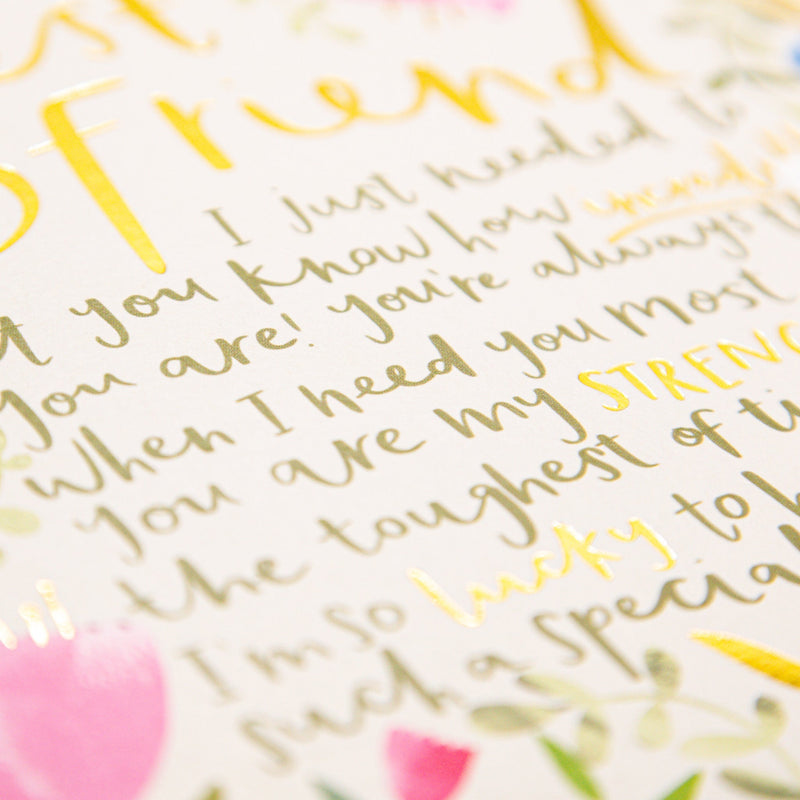 Friend
I just needed
you know how
you are! You're always
when I need you most
you are my STRENG
the toughest of ti
I'm so lucky to h
such a special